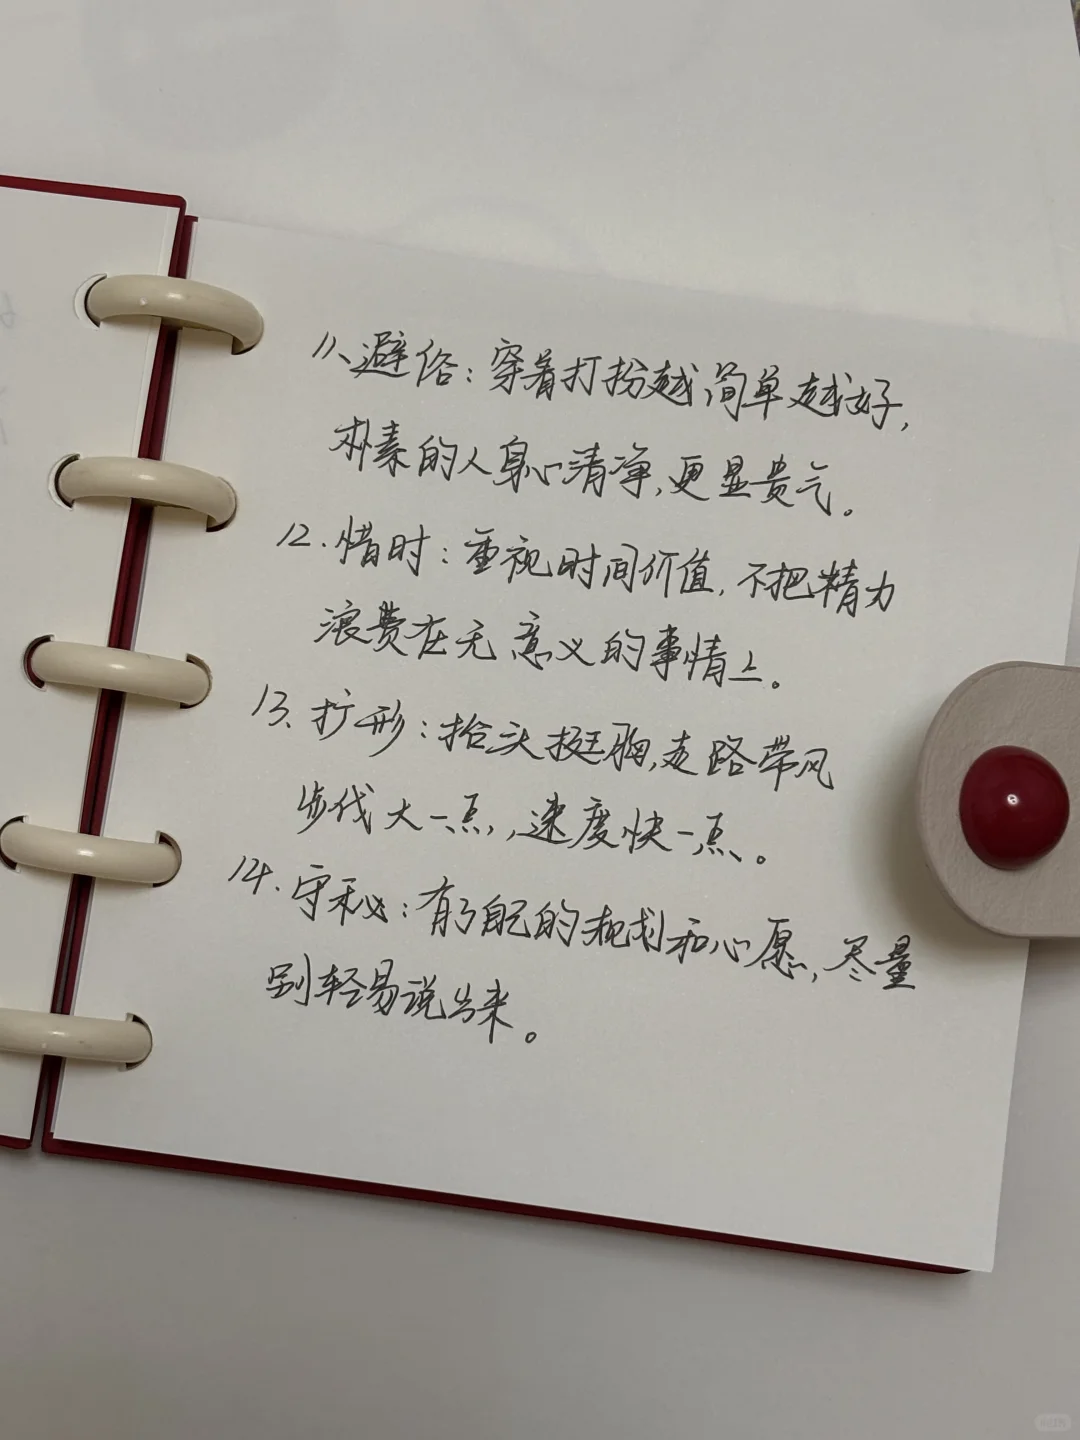 11、避俗：穿着打扮越简单越好，
朴素的人身心清净，更显贵气。
12.惜时：重视时间价值，不把精力
浪费在无意义的事情上。
13、扩形：抬头挺胸，走路带风
步伐大一点，速度快一点。
14.守秘：有了自己的规划和心愿，尽量
别轻易说出来。